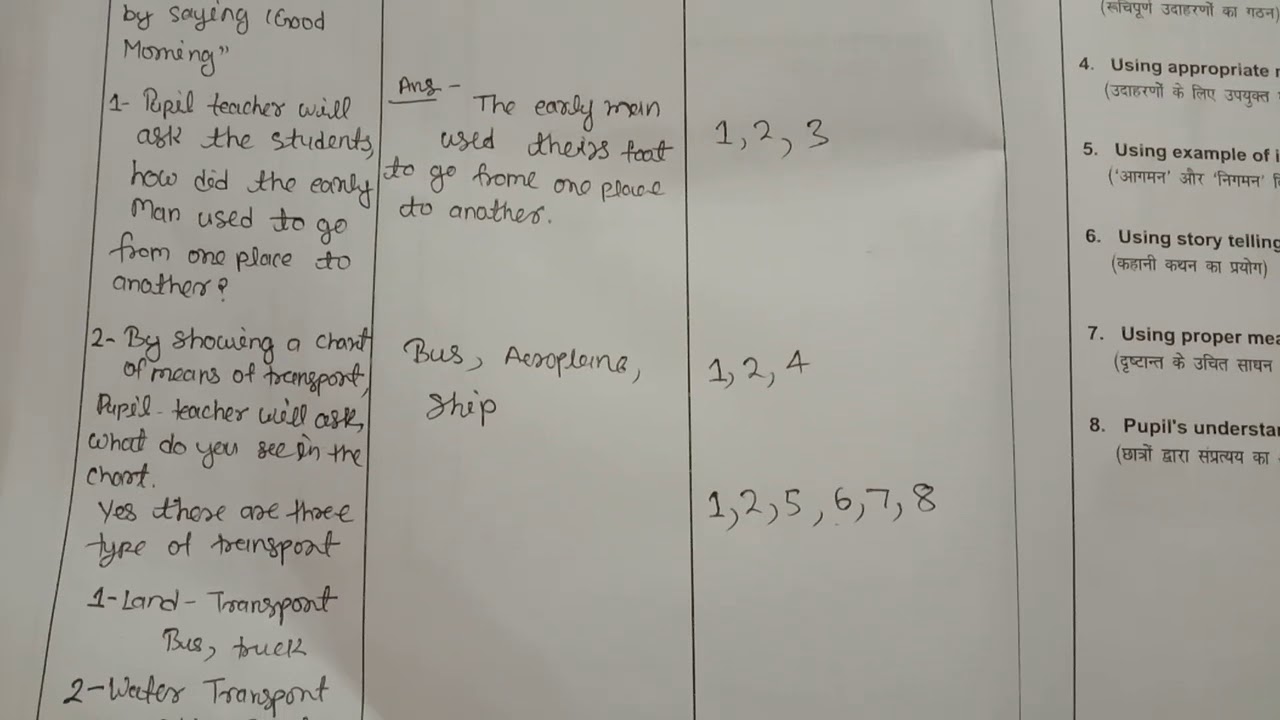 by saying (Good
Morning"
1- Pupil teacher will
ask the students,
how did the early
Man used to go
from one place to
another?
2- By showing a chart
of means of transport,
Pupil-teacher will ask,
what do you see in the
chart.
Yes there are three
type of transport
1-Land-Transport
Bus, truck
2-Water Transport
Ans-
The early man
used theirs foot
to go frome one place
to another.
Bus, Aeroplane,
Ship
1, 2, 3
1, 2, 4
1, 2, 5, 6, 7, 8
(रूचिपूर्ण उदाहरणों का गठन)
4. Using appropriate
(उदाहरणों के लिए उपयुक्त
5. Using example of
('आगमन' और 'निगमन'
6. Using story telling
(कहानी कथन का प्रयोग)
7. Using proper
(दृष्टान्त के उचित साधन
8. Pupil's
(छात्रों द्वारा संप्रत्यय का